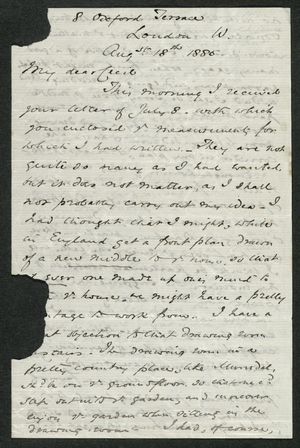 8 Oxford Terrace
London W.
Augst 18th 1886
My dear Cecil
This morning I received
your letter of July 8. with which
you enclosed ye measurements for
which I had written. They are not
quite so many as I had wanted,
but it does not matter, as I shall
not probably carry out my idea. I
had thought that I might, while
in England get a front plan drawn
of a new middle to ye house so that
if ever one made up one's mind to
ye house we might have a pretty
to work from. I have a
objection to that drawing room
upstairs. The drawing room in a
pretty country place, like
is on ye ground floor, so that one can
step out into ye garden, and moreover
enjoy ye garden when sitting in the
drawing room. I had, of course,